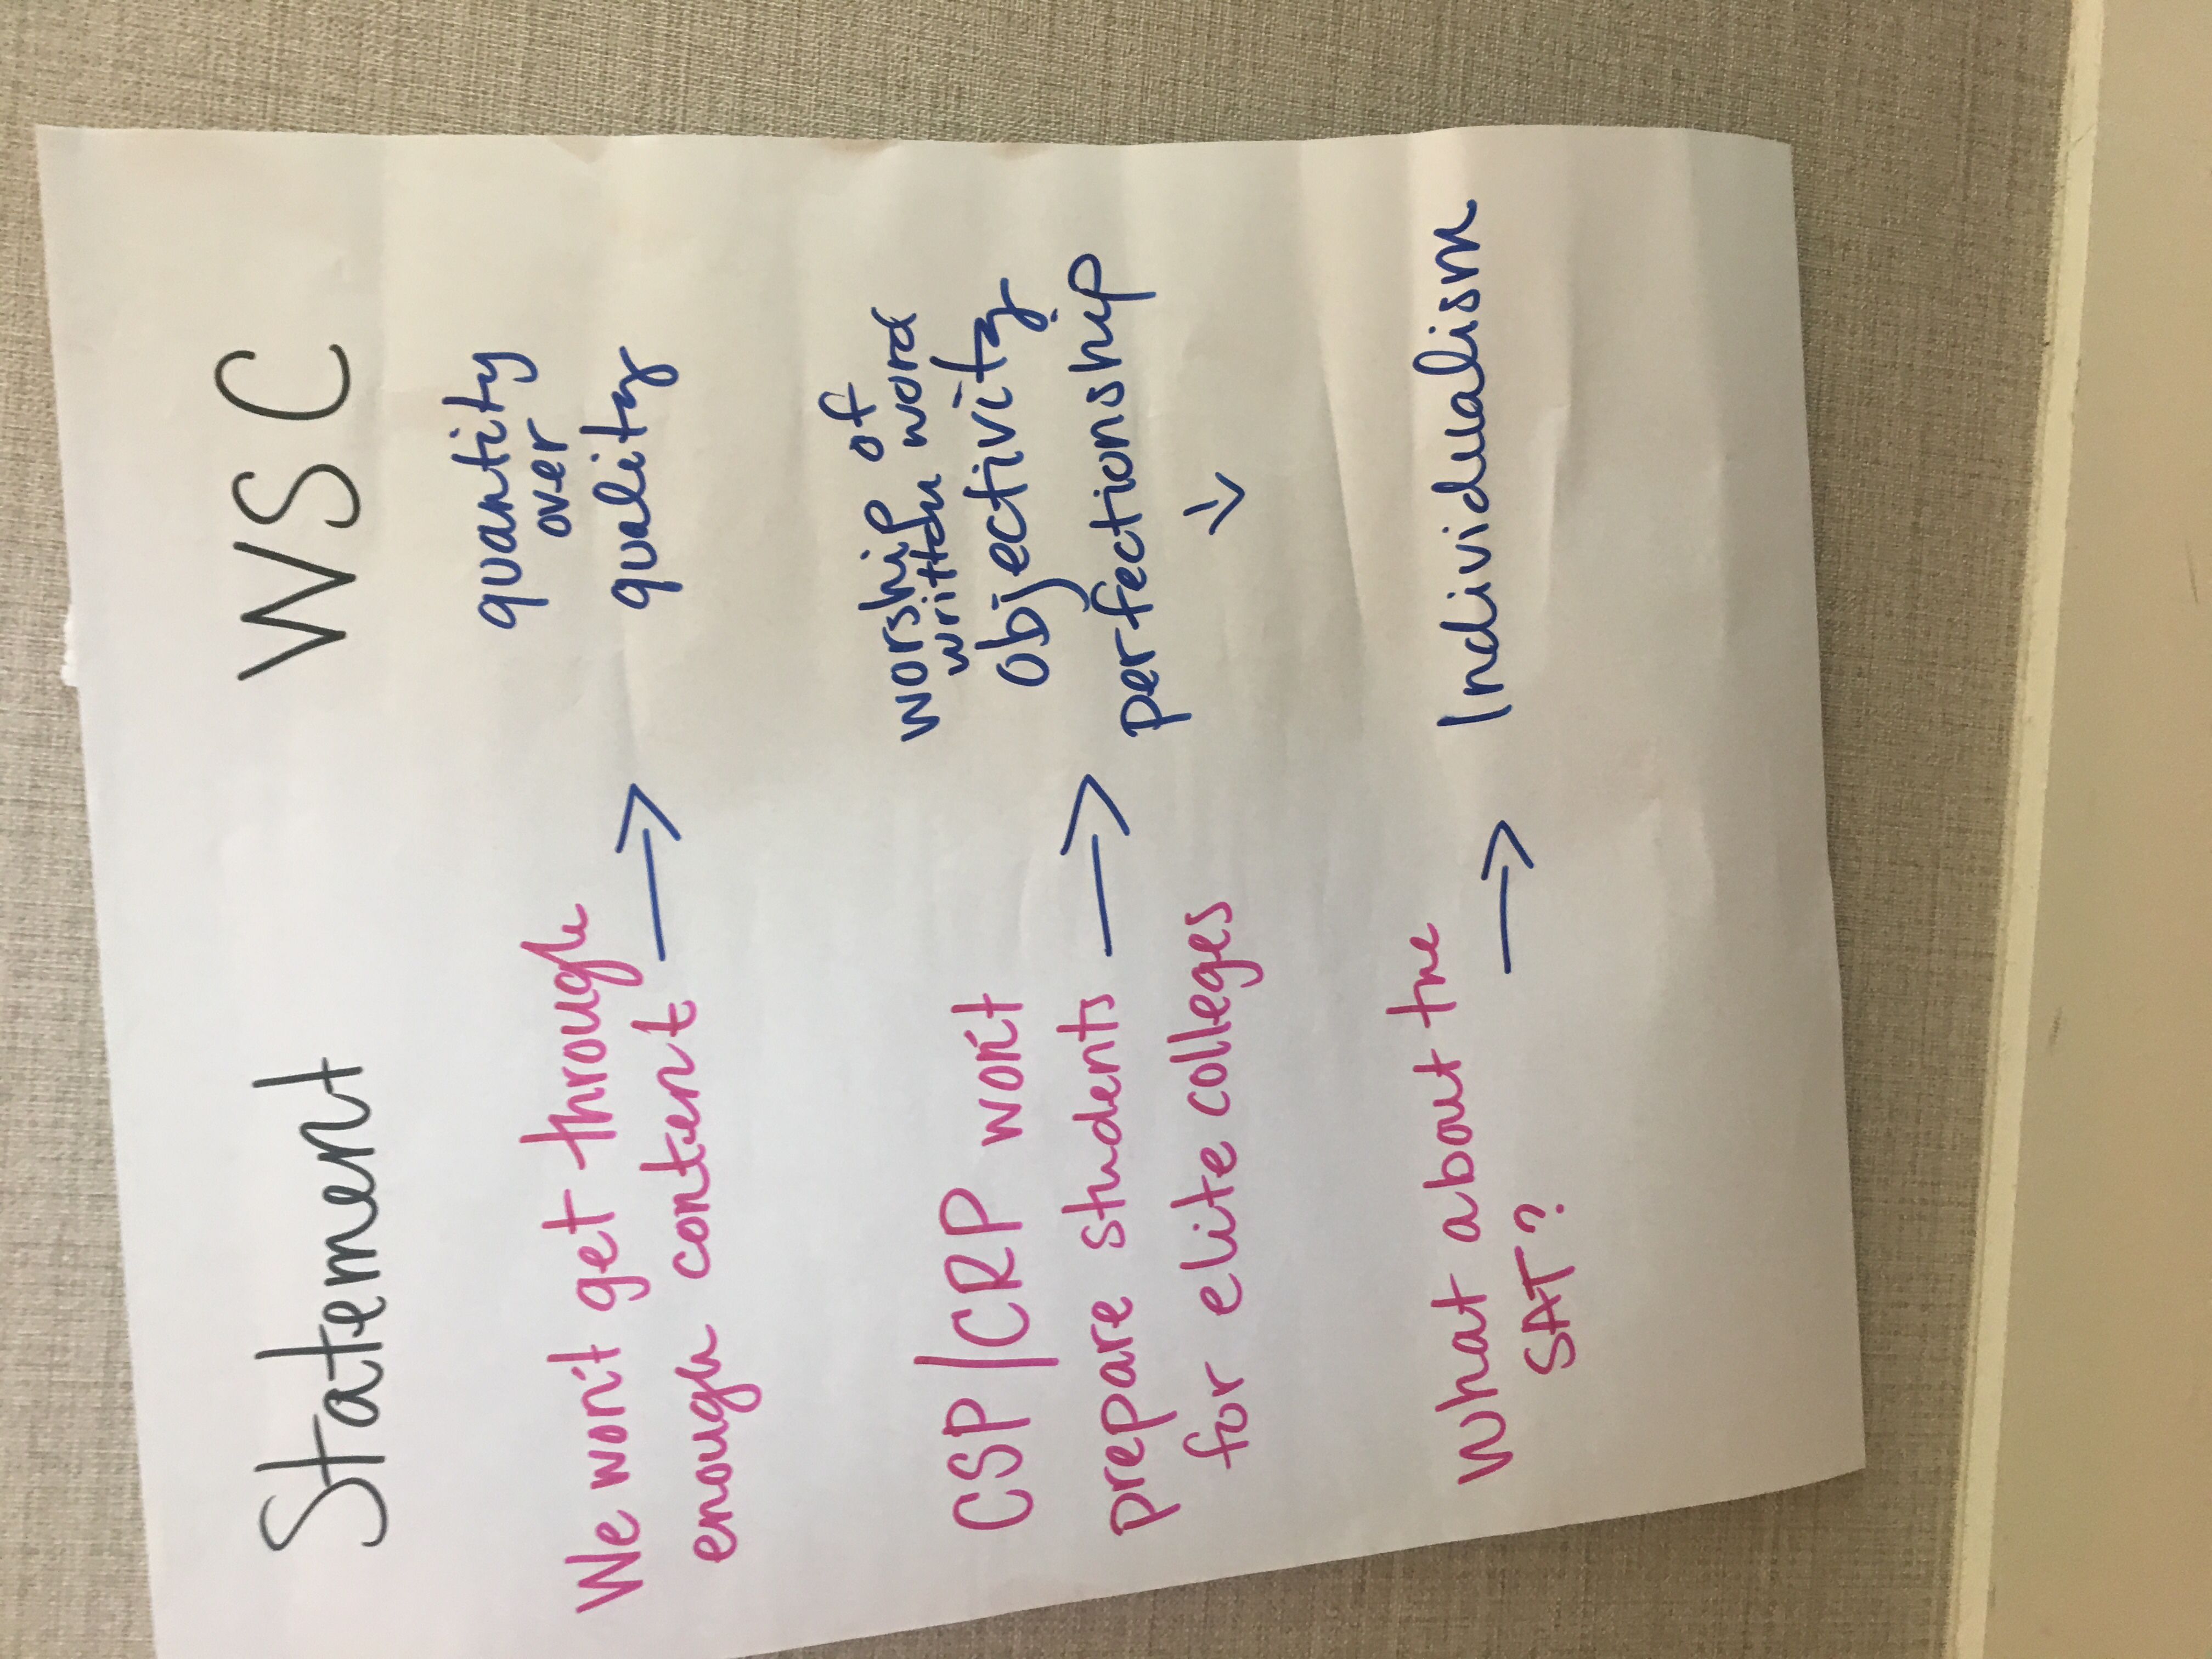 Statement WSC
We won't get through
enough content →
quantity
over
quality
CSP/CRP won't
prepare students →
for elite colleges
worship of
written word
objectivity
perfectionship
→
What about the
SAT? →
Individualism